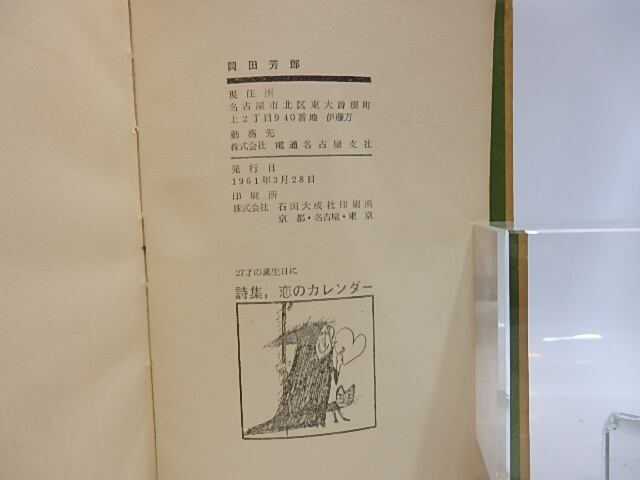 岡田芳郎
現住所
名古屋市北区東大曽根町
上2丁目940番地 伊藤方
勤務先
株式会社 電通名古屋支社
発行日
1961年3月28日
印刷所
株式会社 石田大成社印刷所
京都・名古屋・東京
27才の誕生日に
詩集，恋のカレンダー